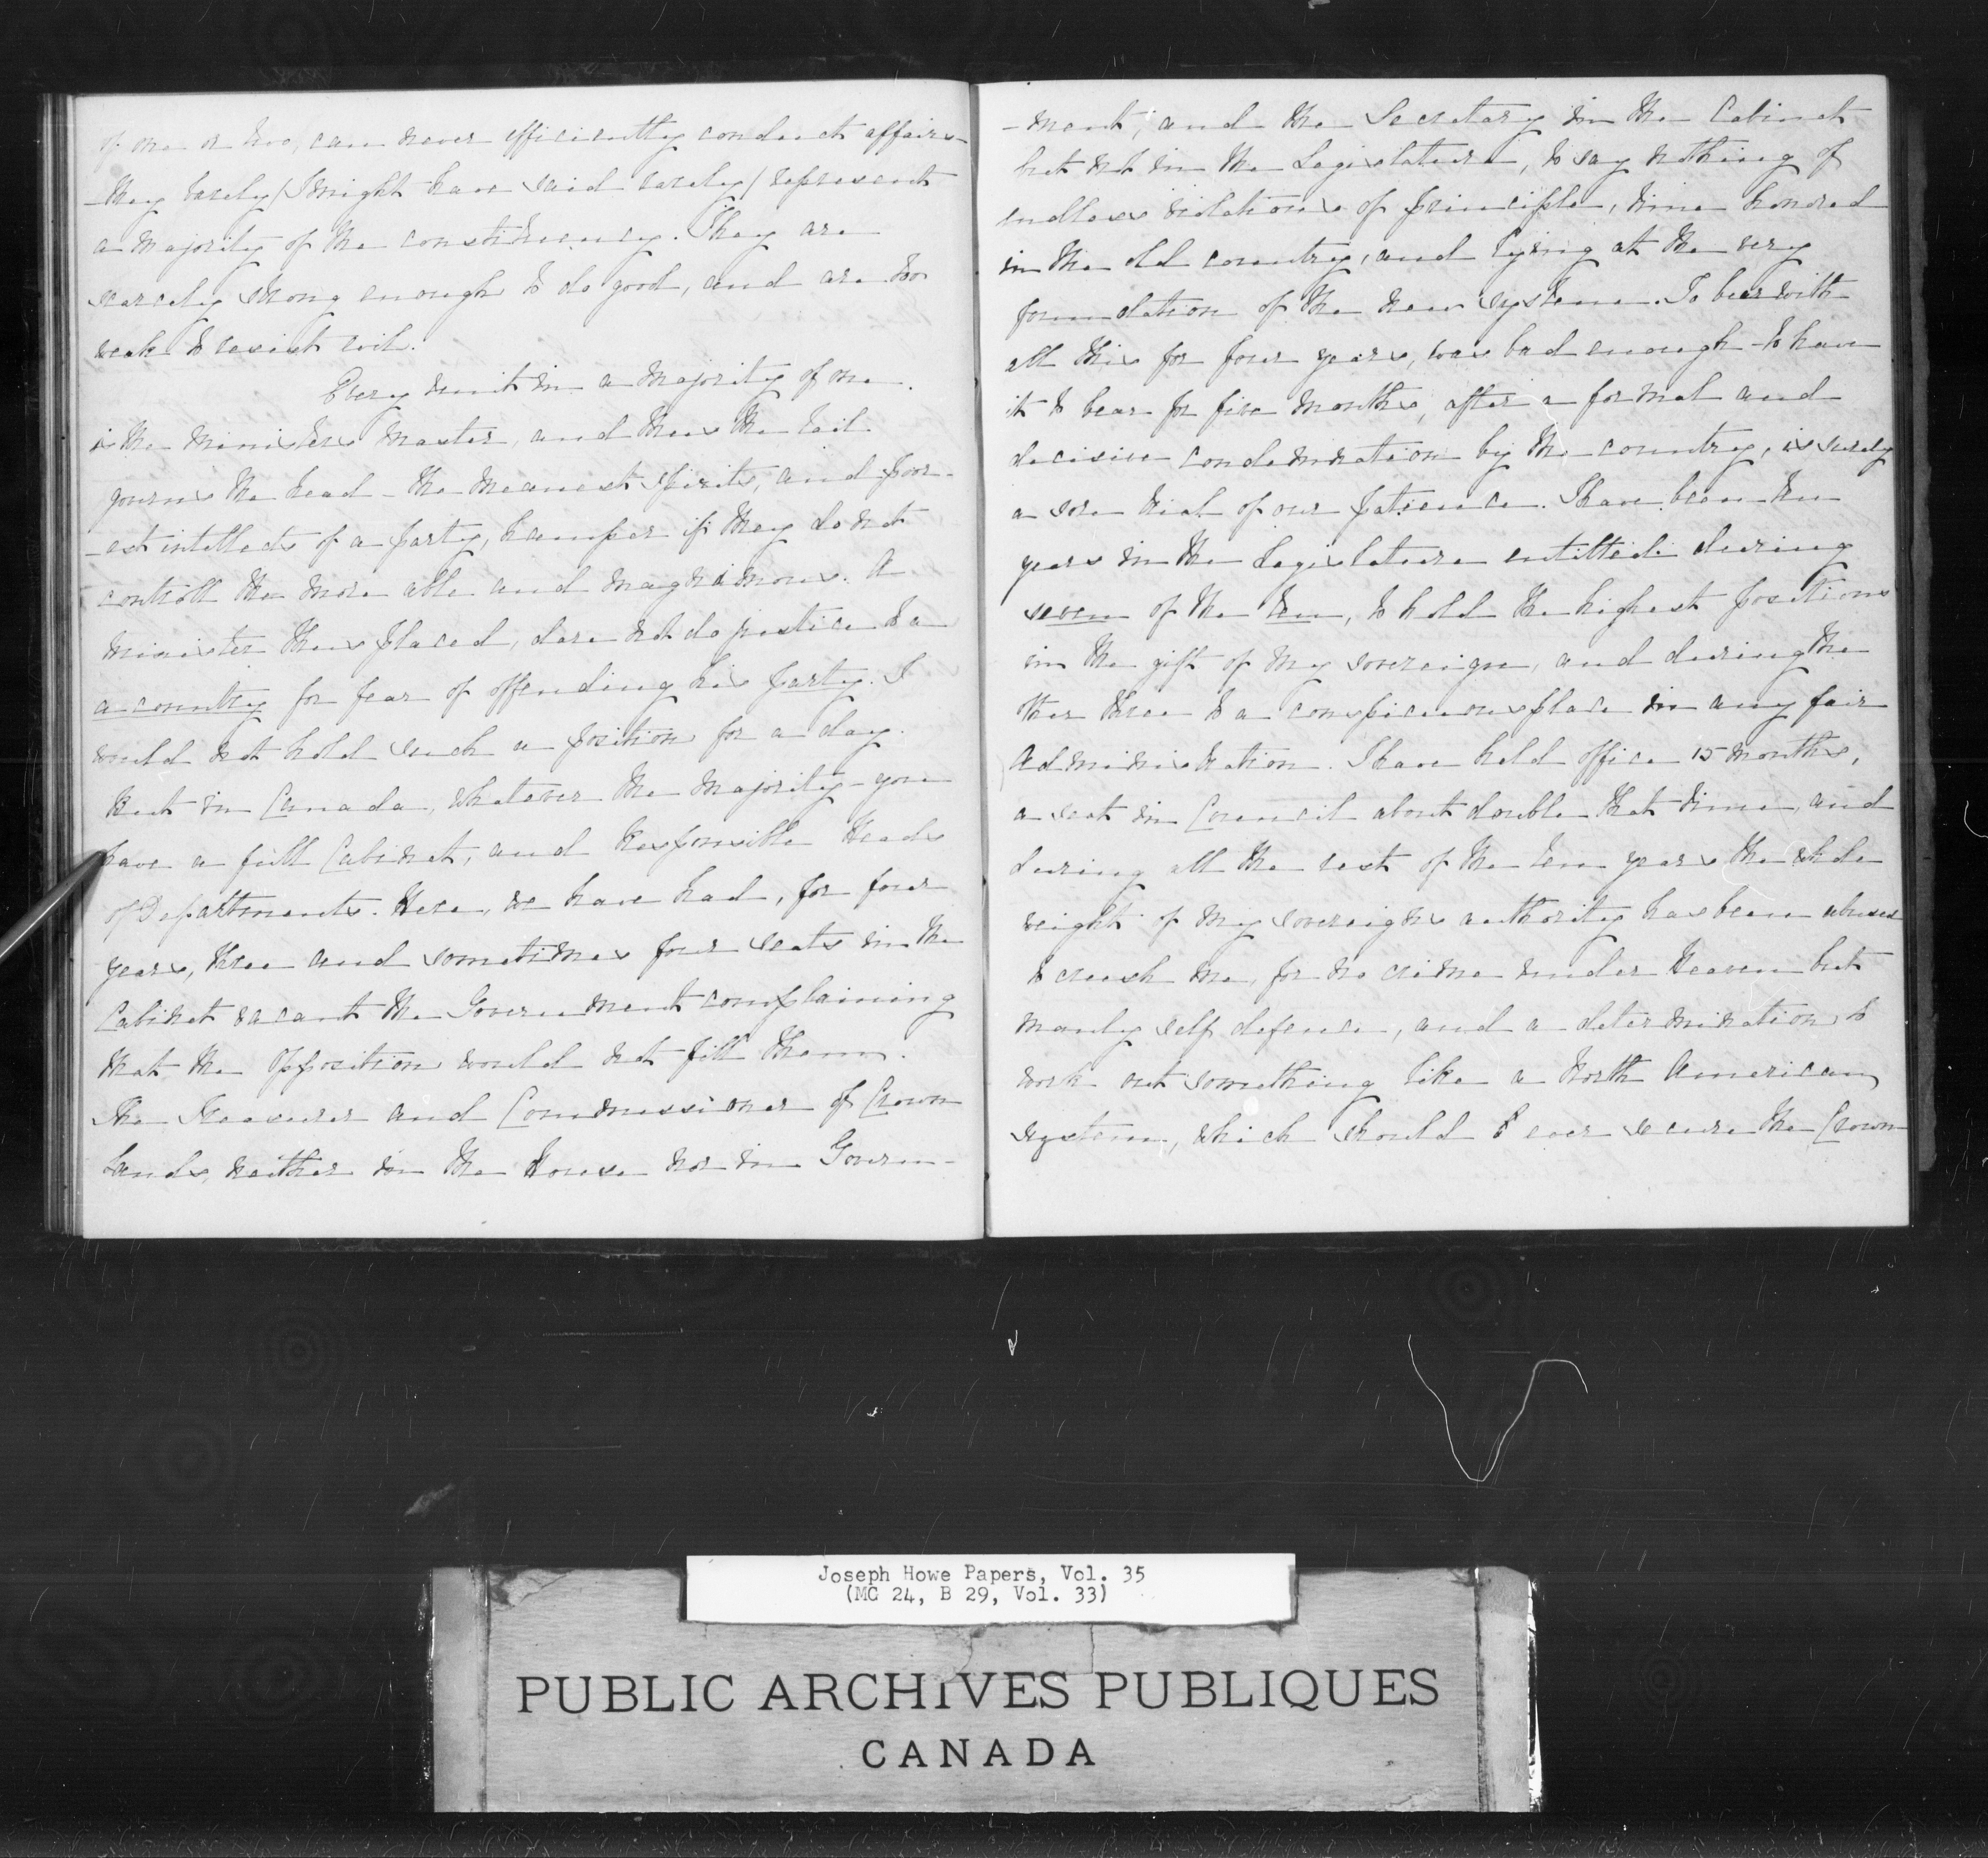 of one or two, can never efficiently conduct affairs
-they barely (I might have said rarely) represent
a majority of the constituency. They are
scarcely strong enough to do good, and are too
weak to resist evil.
Every unit in a majority of one.
is the ministers master, and thus the tail
governs the head - the meanest spirits, and poor-
-est intellects of a party, hamper if they do not
controll the more able and magnanimous. A
minister thus placed, dare not do justice to a
a country for fear of offending his party. I
would not hold such a position for a day.
But in Canada, whatever the majority - you
have a full Cabinet, and Responsible Heads
of Departments. Here, we have had, for four
years, three and sometimes four seats in the
Cabinet vacant the Government complaining
that the Opposition would not fill them.
The Treasurer and Commissioner of Crown
Lands, neither in the House nor in Govern-
-ment, and the Secretary in the Cabinet
but not in the Legislature, to say nothing of
endless violations of principle, time honored
in the old country, and lying at the very
foundation of the new system. To bear with
all this for four years, was bad enough - to have
it to bear for five months, after a formal and
decisive condemnation by the country, is surely
a sore trial of our patience. I have been ten
years in the Legislature entitled during
seven of the ten, to hold the highest positions
in the gift of my sovereign, and during the
other three to a conspicuous place in any fair
Administration. I have held office 15 months,
a seat in Council about double that time, and
during all the rest of the ten years the whole
weight of my sovereigns authority has been abused
to crush me, for no crime under Heaven but
manly self defence, and a determination to
work out something like a North American
system, which should for ever secure the Crown
Joseph Howe Papers, Vol. 35
(MG 24, B 29, Vol. 33)
PUBLIC ARCHIVES PUBLIQUES
CANADA